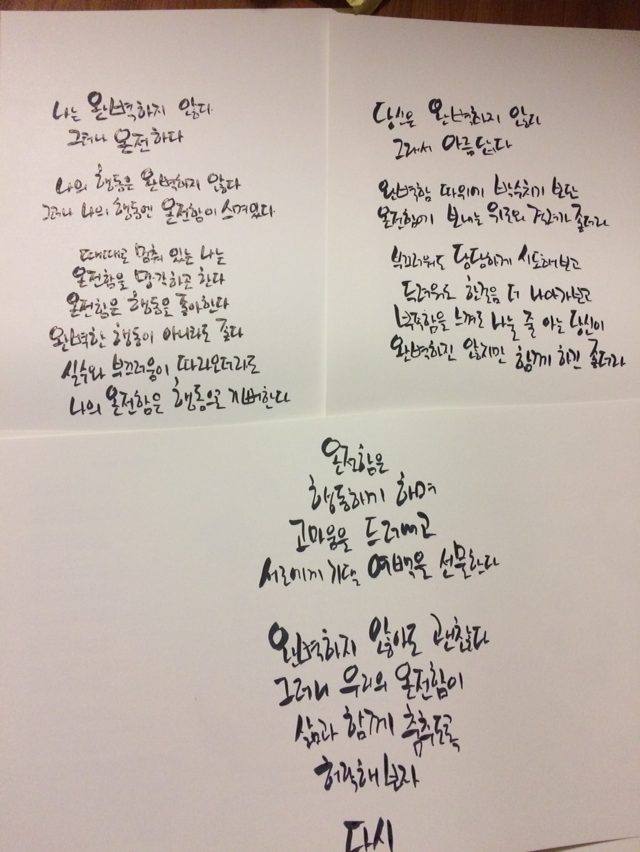 나는 완벽하지 않다
그러나 온전하다
나의 행동은 완벽하지 않다
그러나 나의 행동엔 온전함이 스며있다
때때로 멈춰 있는 나는
온전함을 망각하곤 한다
온전함은 행동을 좋아한다
완벽한 행동이 아니라도 좋다
실수와 부끄러움이 따라오더라도
나의 온전함은 행동으로 기뻐한다
당신은 완벽하지 않다
그래서 아름답다
완벽함 따위에 박수치기 보단
온전함이 보내는 위로와 격려가 좋더라
부끄러워도 당당하게 시도해보고
두려워도 한걸음 더 나아가보고
부족함을 느껴도 나눌 줄 아는 당신이
완벽하진 않지만 함께 하긴 좋더라
온전함은
행동하게 하며
고마움을 드러내고
서로에게 기댈 여백을 선물한다
완벽하지 않아도 괜찮다
그러니 우리의 온전함이
삶과 함께 춤추도록
허락해보자
다시